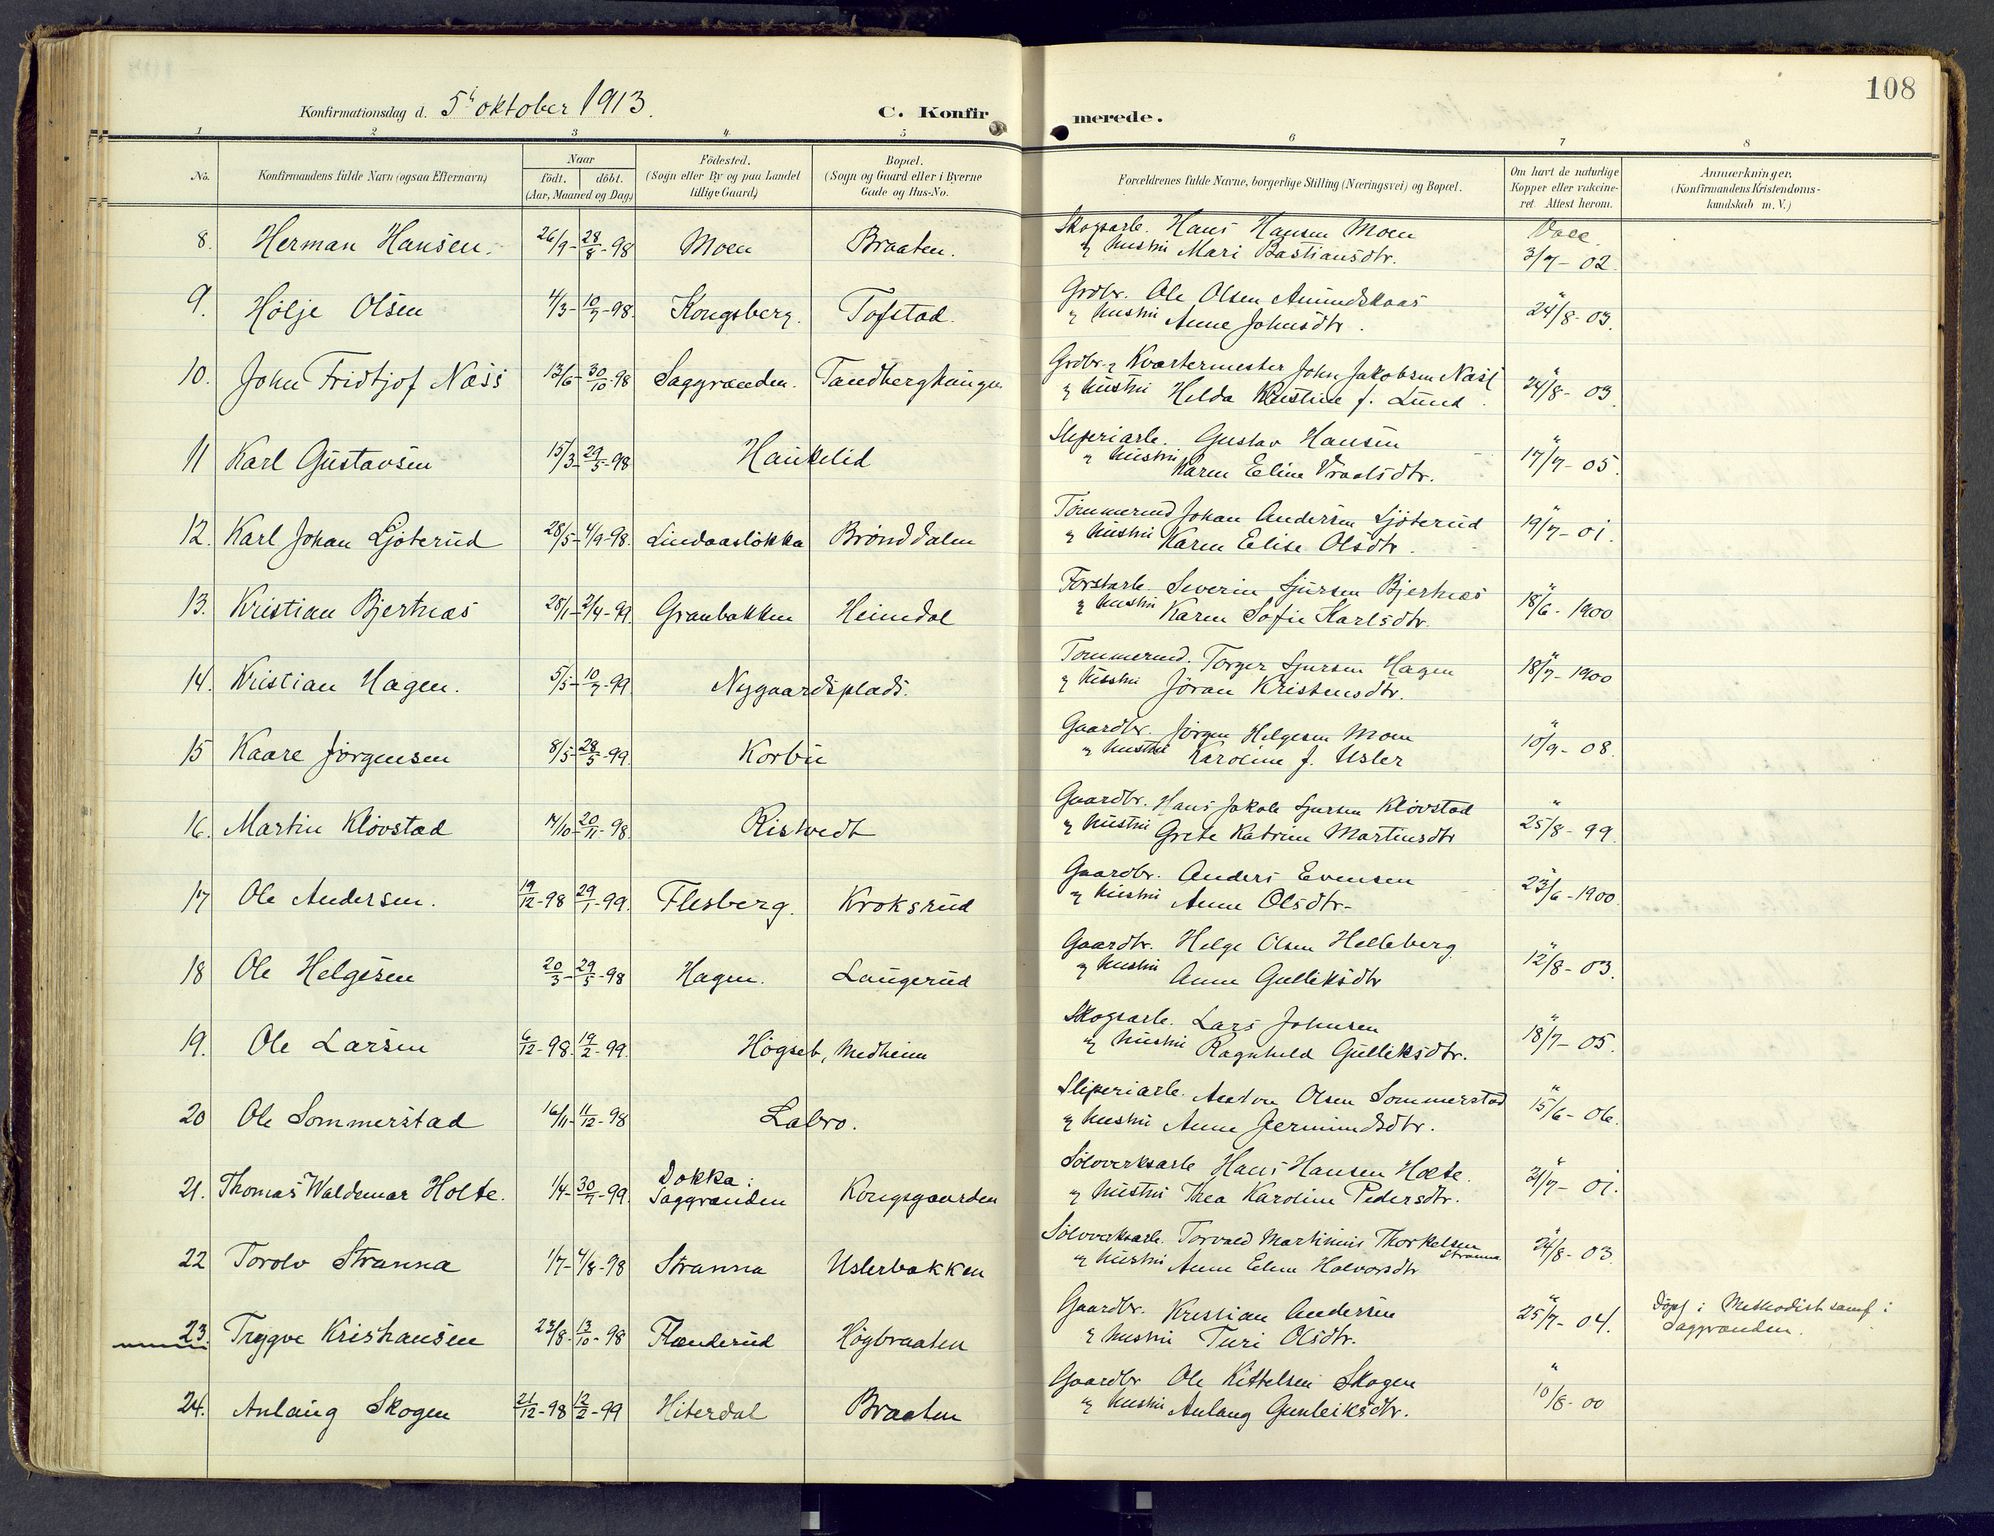 108
Konfirmationsdag d. 5' oktober 1913.
C. Konfirmerede.
1 2 3 4. 5 6 7 8
No.
Konfirmandens fulde Navn (ogsaa Efternavn)
Naar
født. døbt.
(Aar, Maaned og Dag)
Fødested.
(Sogn eller By og paa Landet
tillige Gaard)
Bopæl.
(Sogn og Gaard eller i Byerne
Gade og Hus-No.
Forældrenes fulde Navne, borgerlige Stilling (Næringsvei) og Bopæl.
Om havt de naturlige
Kopper eller vakcine-
ret. Attest herom.
Anmærkninger,
(Konfirmandens Kristendoms-
kundskab m. V.)
8. Herman Hansen. 26/9- 28/8-98 Moen Braaten. Skogsarb. Hans Hansen Moen Vacc.
og hustru Mari Bastiansdtr. 3/7-02.
9. Hølje Olsen 4/3- 10/7-98. Kongsberg. Tofstad. Grdbr. Ole Olsen Amundskaas
og hustru Anne Johnsdtr. " 24/8-03.
10. John Fridtjof Næss 13/6- 30/10-98 Saggrænden. Tandberghaugen Grdbr. og Kvartermester John Jakobsen Næss
og hustru Helda Kristine f. Lund. " 24/8-03.
11 Karl Gustavsen 15/3- 29/5-98 Haukelid Sliperiarb. Gustav Hansen
og hustru Karen Eline Vraalsdtr. " 17/7-05.
12. Karl Johan Ljøterud 28/5- 4/9-98. Lindaasløkka Brønddalen Tømmermd Johan Andersen Ljøterud
og hustru Karen Elise Olsdtr. " 19/7-01.
13. Kristian Bjertnæs 28/1- 2/4-99. Granbakken Heimdal Forstarb. Severin Sjursen Bjertnæs
og hustru Karen Sofie Karlsdtr. " 18/6-1900
14. Kristian Hagen. 5/5- 10/7-99. Nygaardsplads. Tømmermd. Torger Sjursen Hagen
og hustru Jøran Kristensdtr. " 18/7-1900
15 Kaare Jørgensen 8/5- 28/5-99. Korbu Gaardbr. Jørgen Helgesen Moen
og hustru Karoline f. Usler " 10/9-08.
16. Martin Kløvstad /10- 20/11-98. Ristvedt Gaardbr. Hans Jakob Sjursen Kløvstad
og hustru Grete Katrine Martinsdtr " 25/8-99.
17 Ole Andersen. 19/12-98 29/1-99. Flesberg. Kroksrud Gaardbr. Anders Evensen
og hustru Anne Olsdtr- " 23/6-1900.
18 Ole Helgesen 20/3- 29/5-98 Hagen. Laugerud Gaardbr. Helge Olsen Helleberg
og hustru Anne Gulliksdtr " 12/8-03.
19. Ole Larsen 6/12-98. 19/2-99. Høgset, Medheim Skogsarb. Lars Johnsen
og hustru Ragnhild Gulliksdtr. " 18/7-05.
20 Ole Sommerstad 16/11- 11/12-98 Labro. Sliperiarb. Anton Olsen Sommerstad
og hustru Anne Jermundsdtr. " 15/6-06.
21. Thomas Waldemar Holte. 1/4- 30/7-99. Dokka i
Saggrænden Kongsgaarden Sølvverksarb Hans Hansen Holte.
og hustru Thea Karoline Pedersdtr. " /7-01.
22 Torolv Stranna 1/7- 4/8-98 Stranna Uslerbakken Sølvverksarb. Torvald Martinius Thorkelsen
Stranna
og hustru Anne Eline Halvorsdtr " 24/8-03.
23. Trygve Kristiansen 23/8- 13/10-98 Flænderud Høgbraaten Gaardbr. Kristian Andersen
og hustru Turi Olsdtr. " 25/7-04. Døpt i Methodistsamf i
Saggrænden.
24. Anlaug Skogen 21/12-98 12/2-99 Hiterdal Braaten Gaardbr Ole Kittelsen Skogen
og hustru Anlaug Gunleiksdtr. " 10/8-00